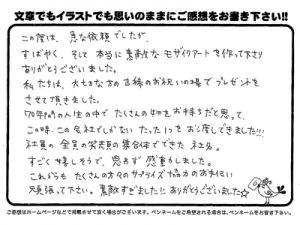 文章でもイラストでも思いのままにご感想をお書き下さい!!
この度は、急な依頼でしたが、
すばやく、そして本当に素敵なモザイクアートを作って下さり
ありがとうございました。
私たちは、大切な方の古稀のお祝いの場でプレゼントを
させて頂きました。
70年間の人生の中でたくさんの物をお持ちだと思って、
この時、この会社でしかないたった1つをお渡しできました!!!
社員の全員の笑顔の集合体でできた社名。
すごく嬉しそうで、思わず感動しました。
これからもたくさんの方々のサプライズ協力のお手伝い
頑張って下さい。素敵すぎました!!ありがとうございました☆
ご感想はホームページなどで掲載させて頂く場合がございます。ペンネームをご希望される場合は、ペンネームをお書き下さい。